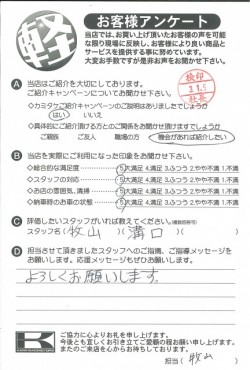 軽
お客様アンケート
当店では、お買い上げ頂いたお客様の声を可能
な限り現場に反映し、お客様により良い商品と
サービスを提供する事に努めています。
大変お手数ですが是非お声をお聞かせ下さい。
検印
社長
A 当店はご紹介を大切にしております。
ご紹介キャンペーンについてお聞かせ下さい。
◇カミタケご紹介キャンペーンのご説明はありましたでしょうか
はい いいえ
◇具体的にご紹介頂ける方とのご関係をお聞かせ頂けますでしょうか
ご親族 ご友人 職場の方 機会があれば紹介したい
B 当店を実際にご利用になった印象をお聞かせ下さい。
◇総合的な満足度 5.大満足 4.満足 3.ふつう 2.やや不満 1.不満
◇スタッフの対応 5.大満足 4.満足 3.ふつう 2.やや不満 1.不満
◇お店の雰囲気、清掃 5.大満足 4.満足 3.ふつう 2.やや不満 1.不満
◇納車時のお車の状態 5.大満足 4.満足 3.ふつう 2.やや不満 1.不満
C 評価したいスタッフがいれば教えてください。(複数回答可)
スタッフ名( 牧山 )( 溝口 )
D 担当させて頂きましたスタッフへのご指摘、ご指導メッセージを
お願いします。応援メッセージもぜひお願いします。
よろしくお願いします。
K
ご協力に心よりお礼を申し上げます。
今後とも宜しくお引き立てご愛顧の程お願い申し上げます。
またのご来店を心からお待ちしております。
担当( 牧山 )